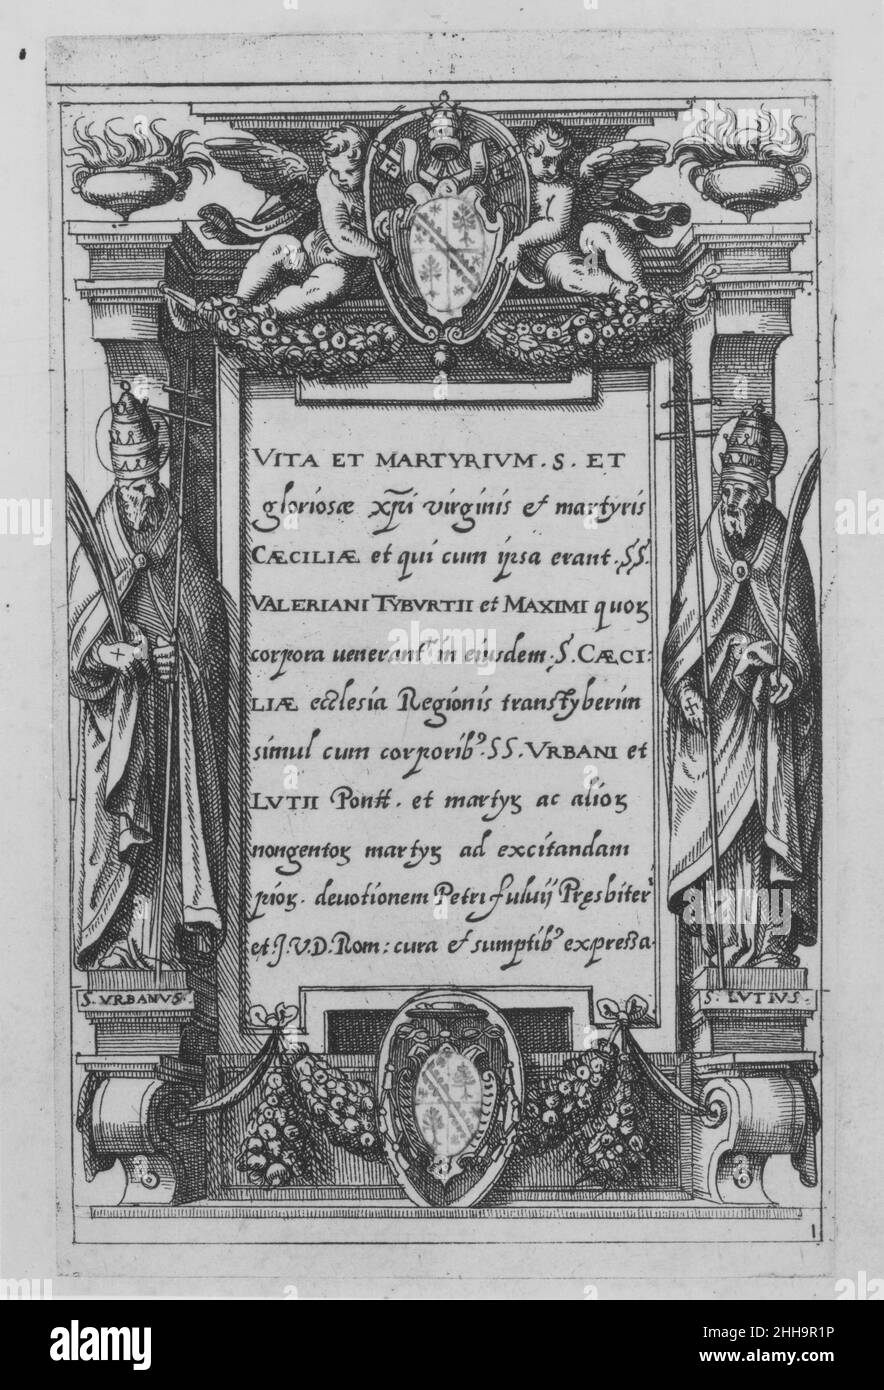 VITA ET MARTYRIVM . S . ET
gloriosæ xp̄i virginis et martyris
CÆCILIÆ et qui cum ipsa erant . SS.
VALERIANI TYBVRTII et MAXIMI quoꝝ
corpora uenerant᷒ in eiusdem . S . CÆCI:
LIÆ ecclesia Regionis transtyberim
simul cum corporib᷒ . SS . VRBANI et
LVTII Pontt . et martyꝝ ac alioꝝ
nongentoꝝ martyꝝ ad excitandam
pioꝝ . deuotionem Petri fuluij Pręsbiter
et J.V.D. Rom: cura et sumptib᷒ expressa .
S. VRBANVS .
S. LVTIVS .
1
alamy
alamy
Image ID: 2HH9R1P
www.alamy.com